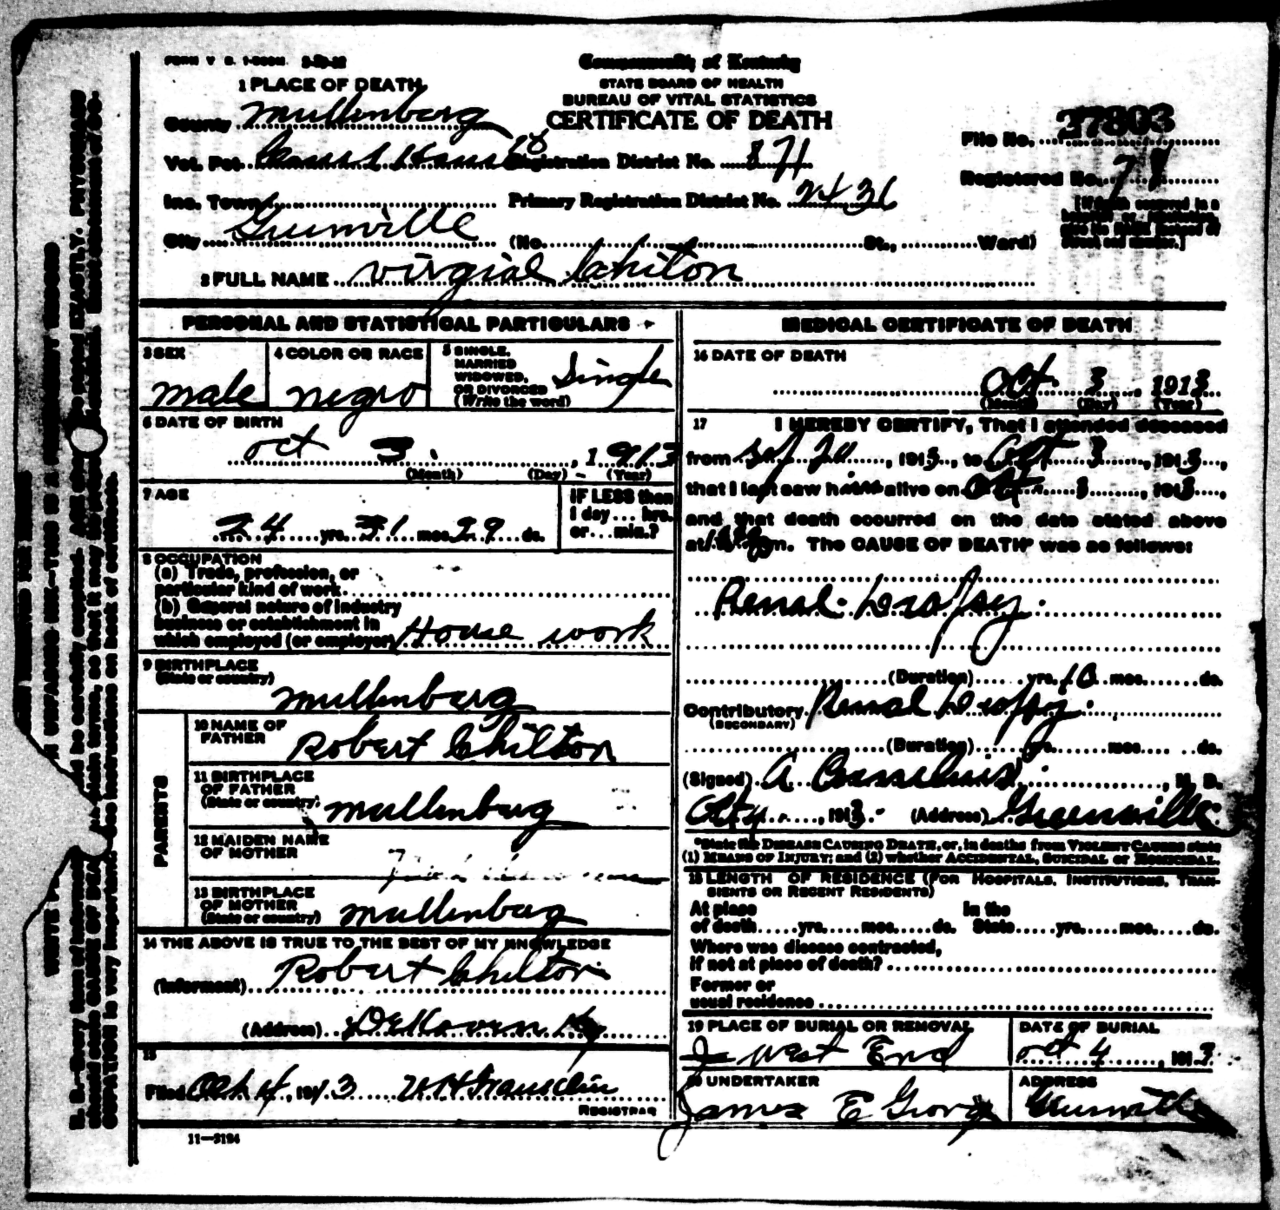 FORM V. S. 1-500M
Commonwealth of Kentucky
STATE BOARD OF HEALTH
BUREAU OF VITAL STATISTICS
CERTIFICATE OF DEATH
1 PLACE OF DEATH
County Mullenbarg
Vot. Pct. Court House Registration District No. 871
Inc. Town Primary Registration District No. 2436
City Grunville (No. St., Ward)
File No. 27803
Registered No. 78
[If death occurred in a hospital or institution, give its NAME instead of street and number.]
2 FULL NAME Virgial Chilton
PERSONAL AND STATISTICAL PARTICULARS
3 SEX male
4 COLOR OR RACE negro
5 SINGLE, MARRIED, WIDOWED, OR DIVORCED (Write the word) Single
6 DATE OF BIRTH
oct 3. , 1913
(Month) (Day) (Year)
7 AGE
24 yrs. mos. 29 ds.
IF LESS than 1 day... hrs. or... min.?
8 OCCUPATION
(a) Trade, profession, or particular kind of work
(b) General nature of industry business or establishment in which employed (or employer) House work
9 BIRTHPLACE
(State or country)
mullenbarg
PARENTS
10 NAME OF FATHER Robert Chilton
11 BIRTHPLACE OF FATHER (State or country) mullenburg
12 MAIDEN NAME OF MOTHER
13 BIRTHPLACE OF MOTHER (State or country) mullenbarg
14 THE ABOVE IS TRUE TO THE BEST OF MY KNOWLEDGE
(Informant) Robert Chilton
(Address) DeKoven Ky
15
Filed Oct 4, 1913
REGISTRAR
11-3184
MEDICAL CERTIFICATE OF DEATH
16 DATE OF DEATH
Oct 3, 1913
(Month) (Day) (Year)
17 I HEREBY CERTIFY, That I attended deceased
from , 1913, to Oct 3, 1913,
that I last saw him alive on Oct 3, 1913,
and that death occurred on the date stated above
at m. The CAUSE OF DEATH* was as follows:
Renal Dropsy.
(Duration) yrs. 10 mos. ds.
Contributory Renal Dropsy.
(SECONDARY)
(Duration) yrs. mos. ds.
(Signed) A , M. D.
Oct 4, 1913. (Address) Greenville
*State the DISEASE CAUSING DEATH, or, in deaths from VIOLENT CAUSES state
(1) MEANS OF INJURY; and (2) whether ACCIDENTAL, SUICIDAL or HOMICIDAL.
18 LENGTH OF RESIDENCE (FOR HOSPITALS, INSTITUTIONS, TRANSIENTS OR RECENT RESIDENTS)
At place of death yrs. mos. ds. In the State yrs. mos. ds.
Where was disease contracted,
if not at place of death?
Former or
usual residence
19 PLACE OF BURIAL OR REMOVAL
West End
DATE OF BURIAL
oct 4, 1913
20 UNDERTAKER
James E George
ADDRESS